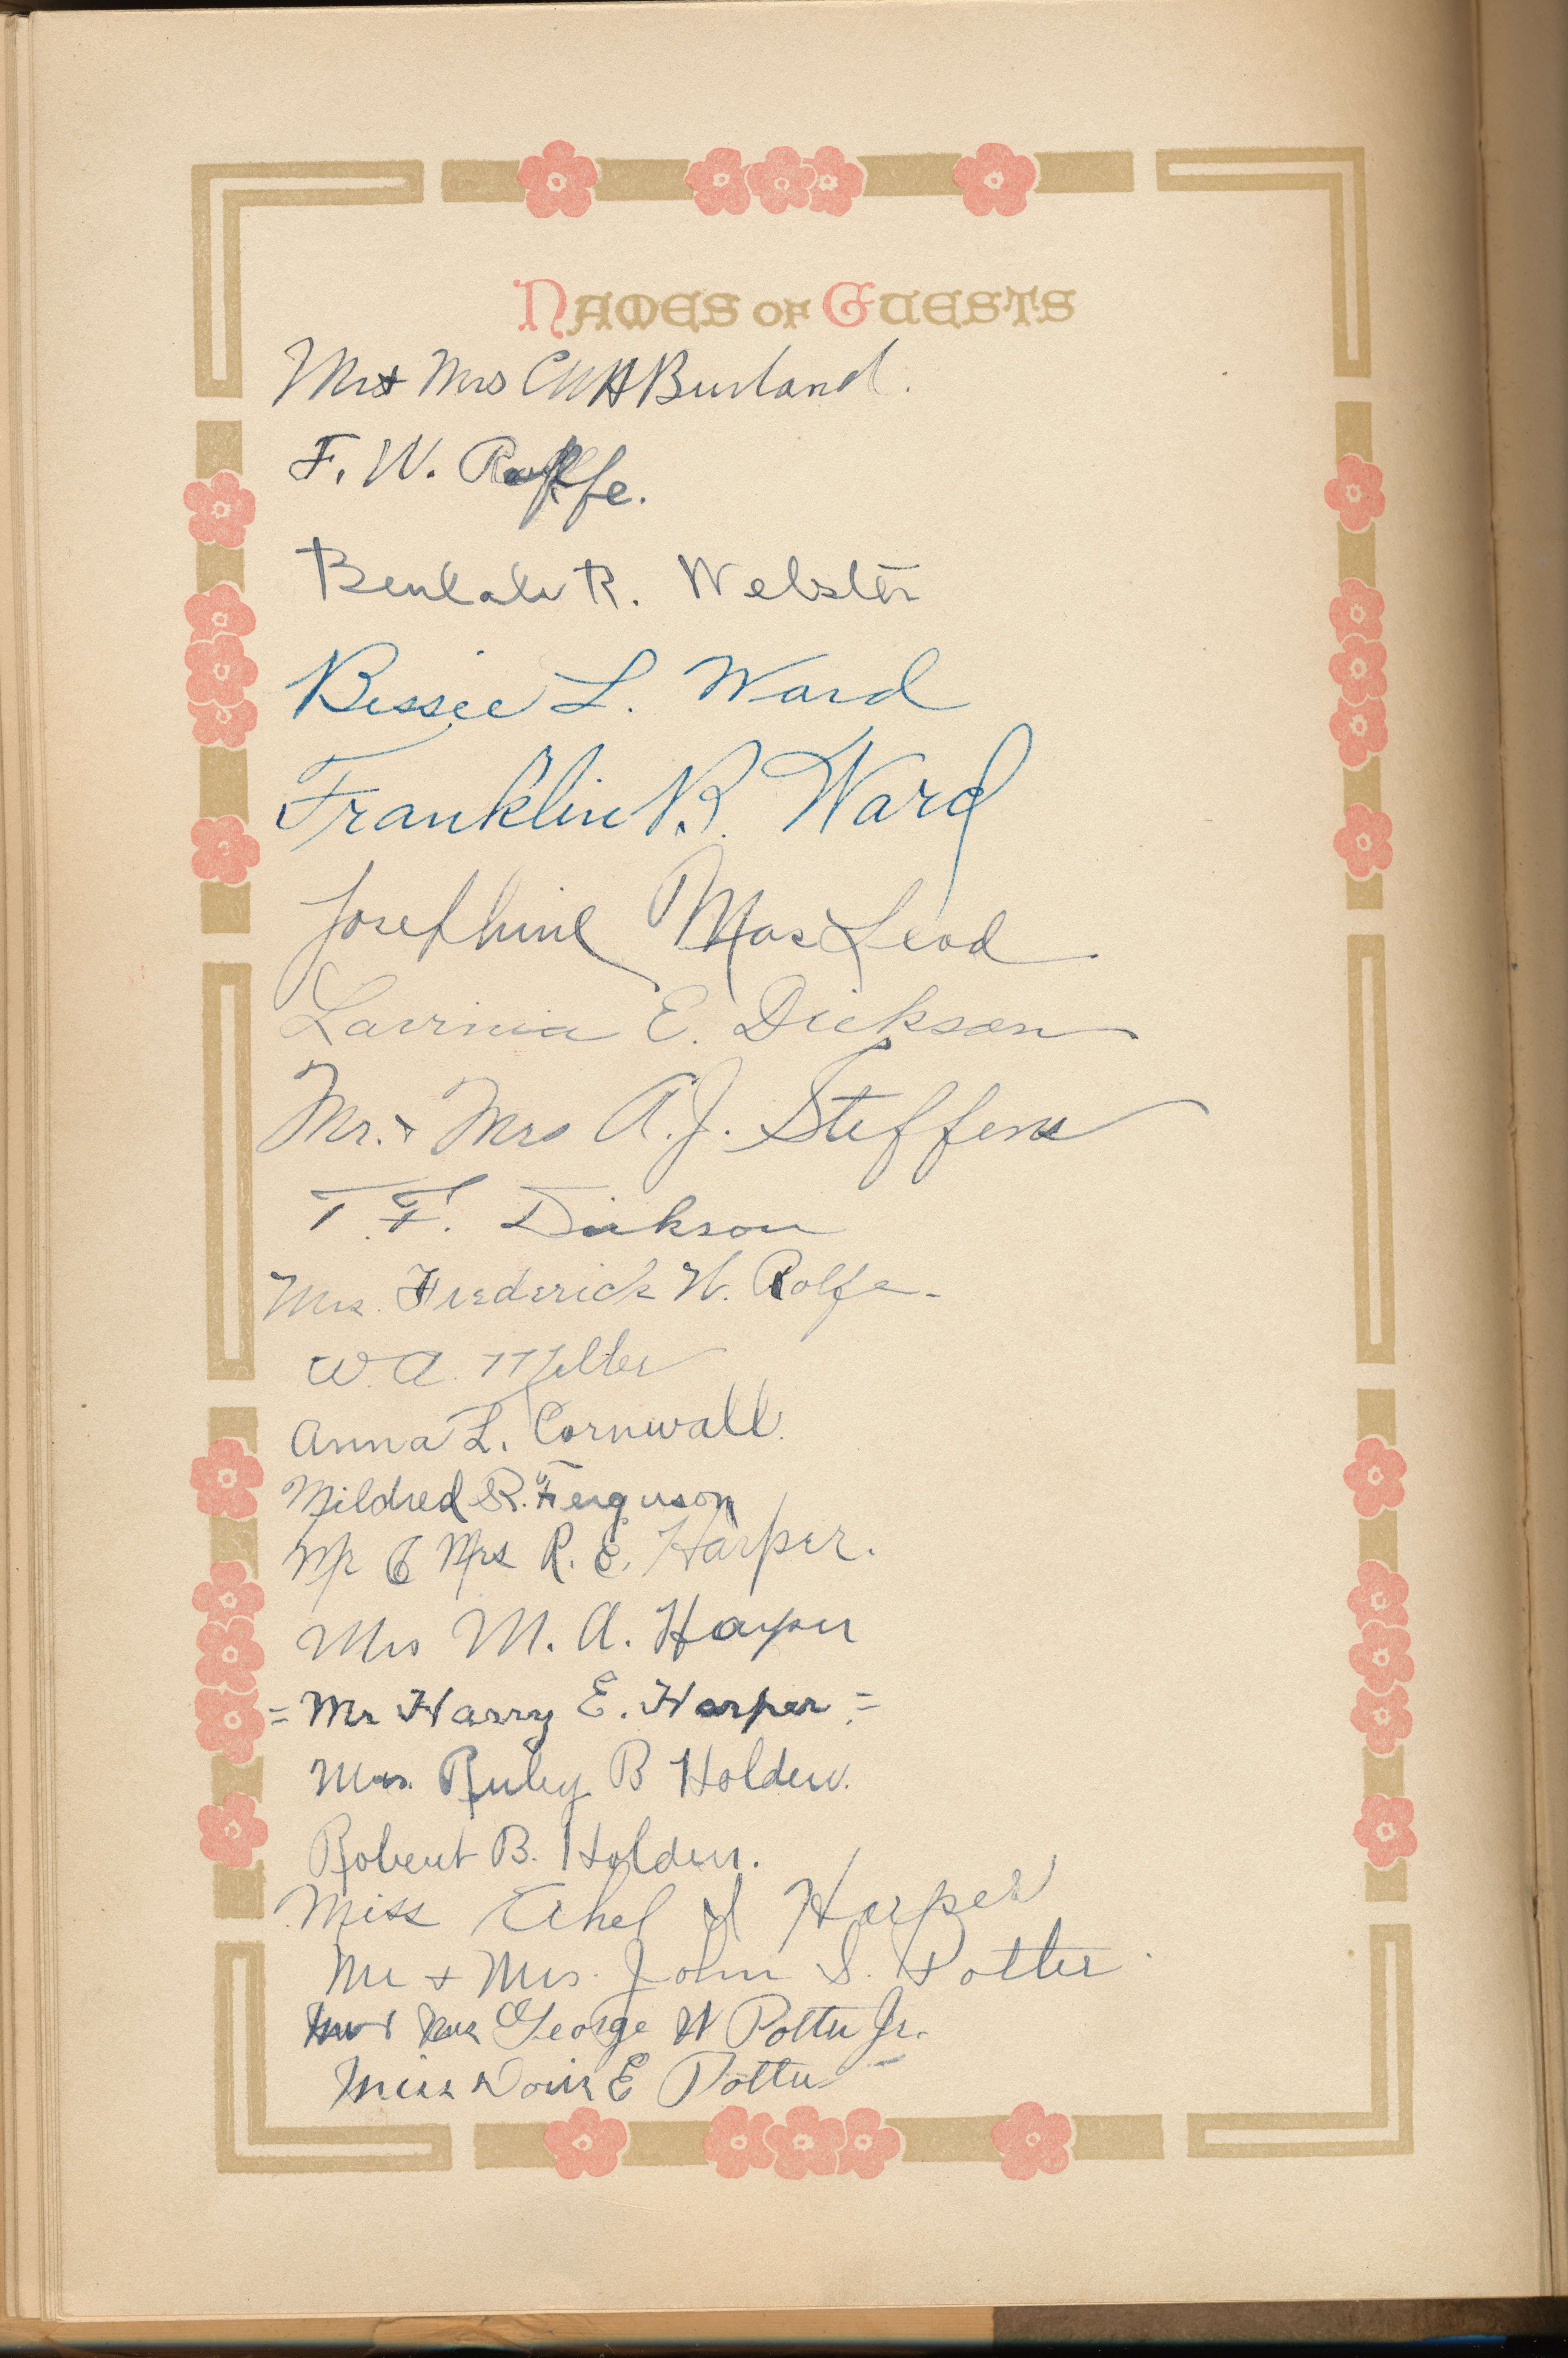 NAMES OF GUESTS
Mr + Mrs C W H Burland.
F. W. Rolfe.
Beulah R. Webster
Bessie L. Ward
Franklin R. Ward
Josephine MacLeod
Lavinia E. Dickson
Mr. + Mrs A. J. Steffens
T. F. Dickson
Mrs. Frederick W. Rolfe-
W. A. Miller
Anna L. Cornwall.
Mildred R. Ferguson
Mr & Mrs R. E. Harper.
Mrs M. A. Harper
= Mr Harry E. Harper. =
Mrs. Ruby B Holden.
Robert B. Holden.
Miss Ethel I Harper
Mr + Mrs. John S. Potter
Mr + Mrs George W Potter Jr.
Miss Doris E Potter